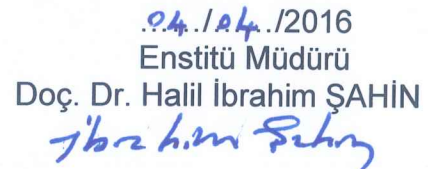 04./04./2016
Enstitü Müdürü
Doç. Dr. Halil İbrahim ŞAHİN
İbrahim Şahin